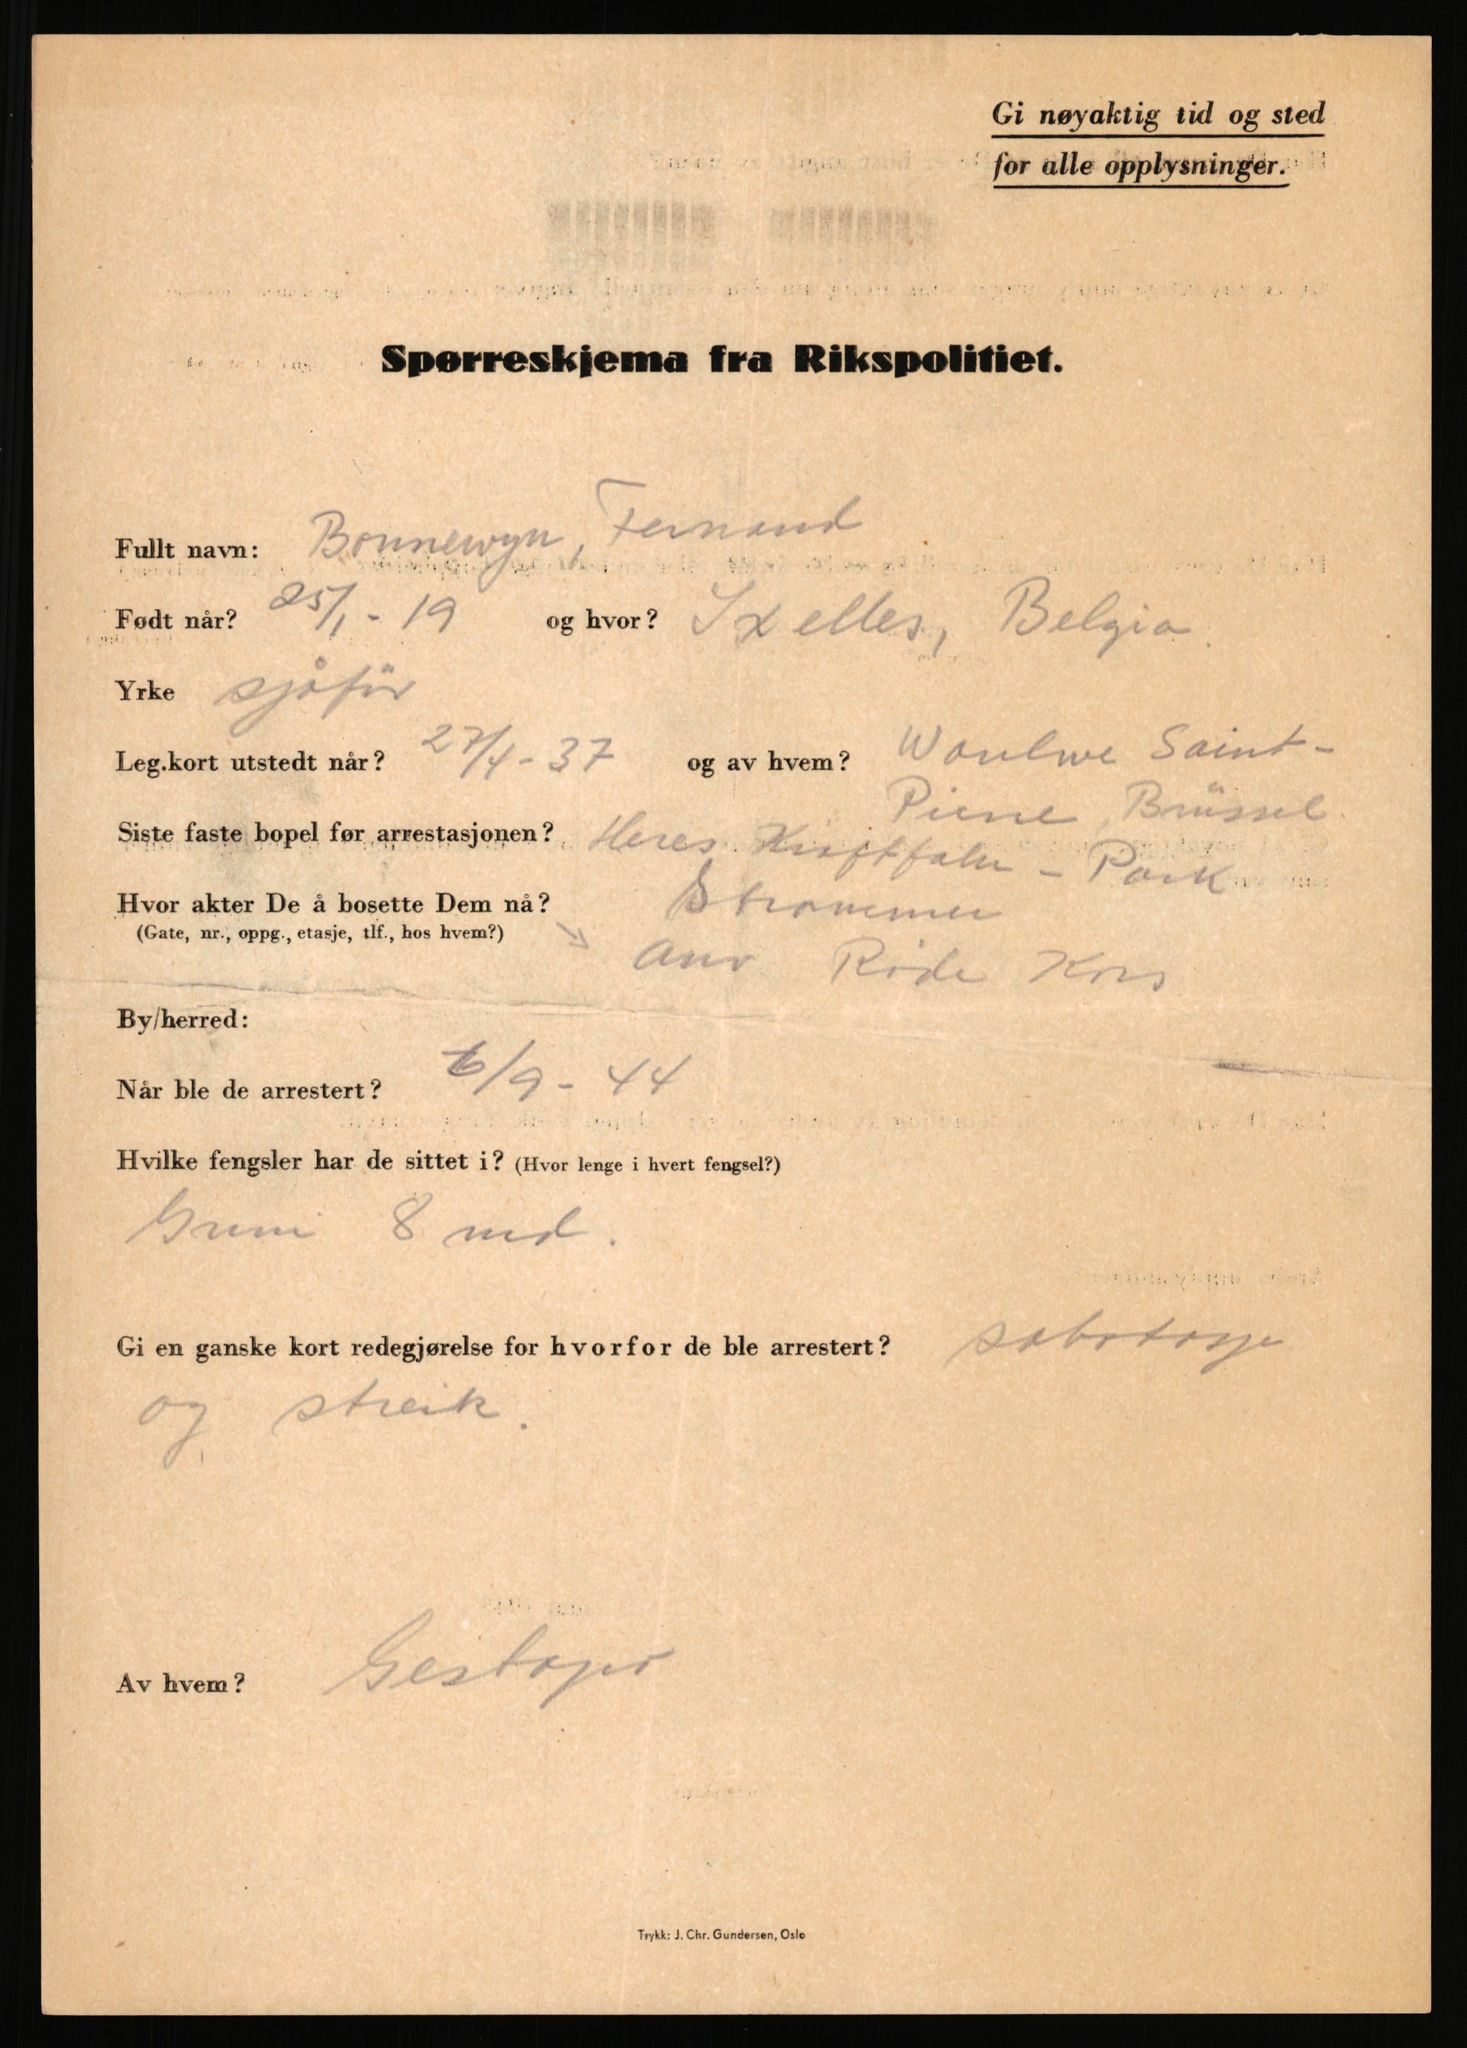 Gi nøyaktig tid og sted
for alle opplysninger.
Spørreskjema fra Rikspolitiet.
Fullt navn: Bonnewyn, Fernand
Født når? 25/1 - 19 og hvor? Ixelles, Belgia.
Yrke sjåfür
Leg.kort utstedt når? 27/4 - 37 og av hvem? Woulwe Saint-
Pierre, Brüssel.
Siste faste bopel før arrestasjonen? Heres Kraftfahr - Park
Hvor akter De å bosette Dem nå? Strømmen
(Gate, nr., oppg., etasje, tlf., hos hvem?) Røde Kors
By/herred:
Når ble de arrestert? 6/9 - 44
Hvilke fengsler har de sittet i? (Hvor lenge i hvert fengsel?)
Grini 8 md.
Gi en ganske kort redegjørelse for hvorfor de ble arrestert? sabotasje
og streik.
Av hvem? Gestapo
Trykk: J. Chr. Gundersen, Oslo